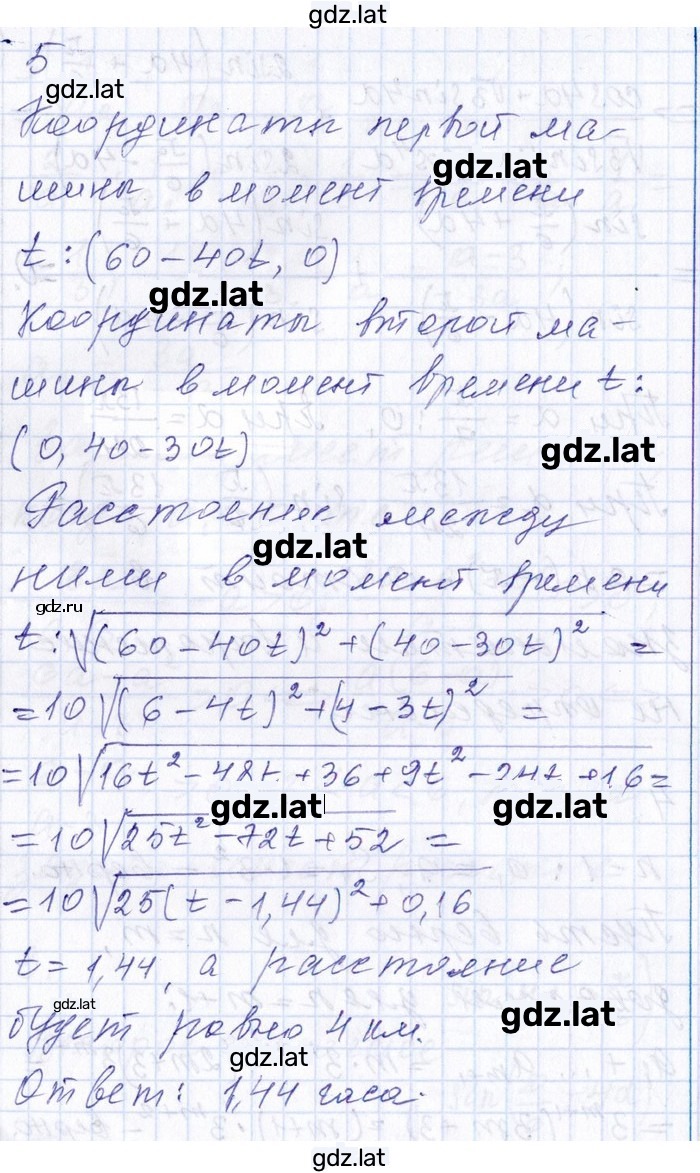 gdz.lat
5
gdz.lat
Координаты первой ма-
gdz.lat
шины в момент времени
t: (60-40t, 0)
gdz.lat
Координаты второй ма-
шины в момент времени t:
(0, 40-30t)
gdz.lat
Расстояние между
gdz.lat
ними в момент времени
gdz.ru
t: √(60-40t)² + (40-30t)² =
= 10√(6-4t)² + (4-3t)² =
= 10√16t² - 48t + 36 + 9t² - 24t + 16 =
gdz.lat gdz.lat
= 10√25t² - 72t + 52 =
= 10√25(t - 1,44)² + 0,16
t = 1,44, а расстояние
gdz.lat
будет равно 4 км.
gdz.lat
gdz.lat
Ответ: 1,44 часа.
gdz.lat